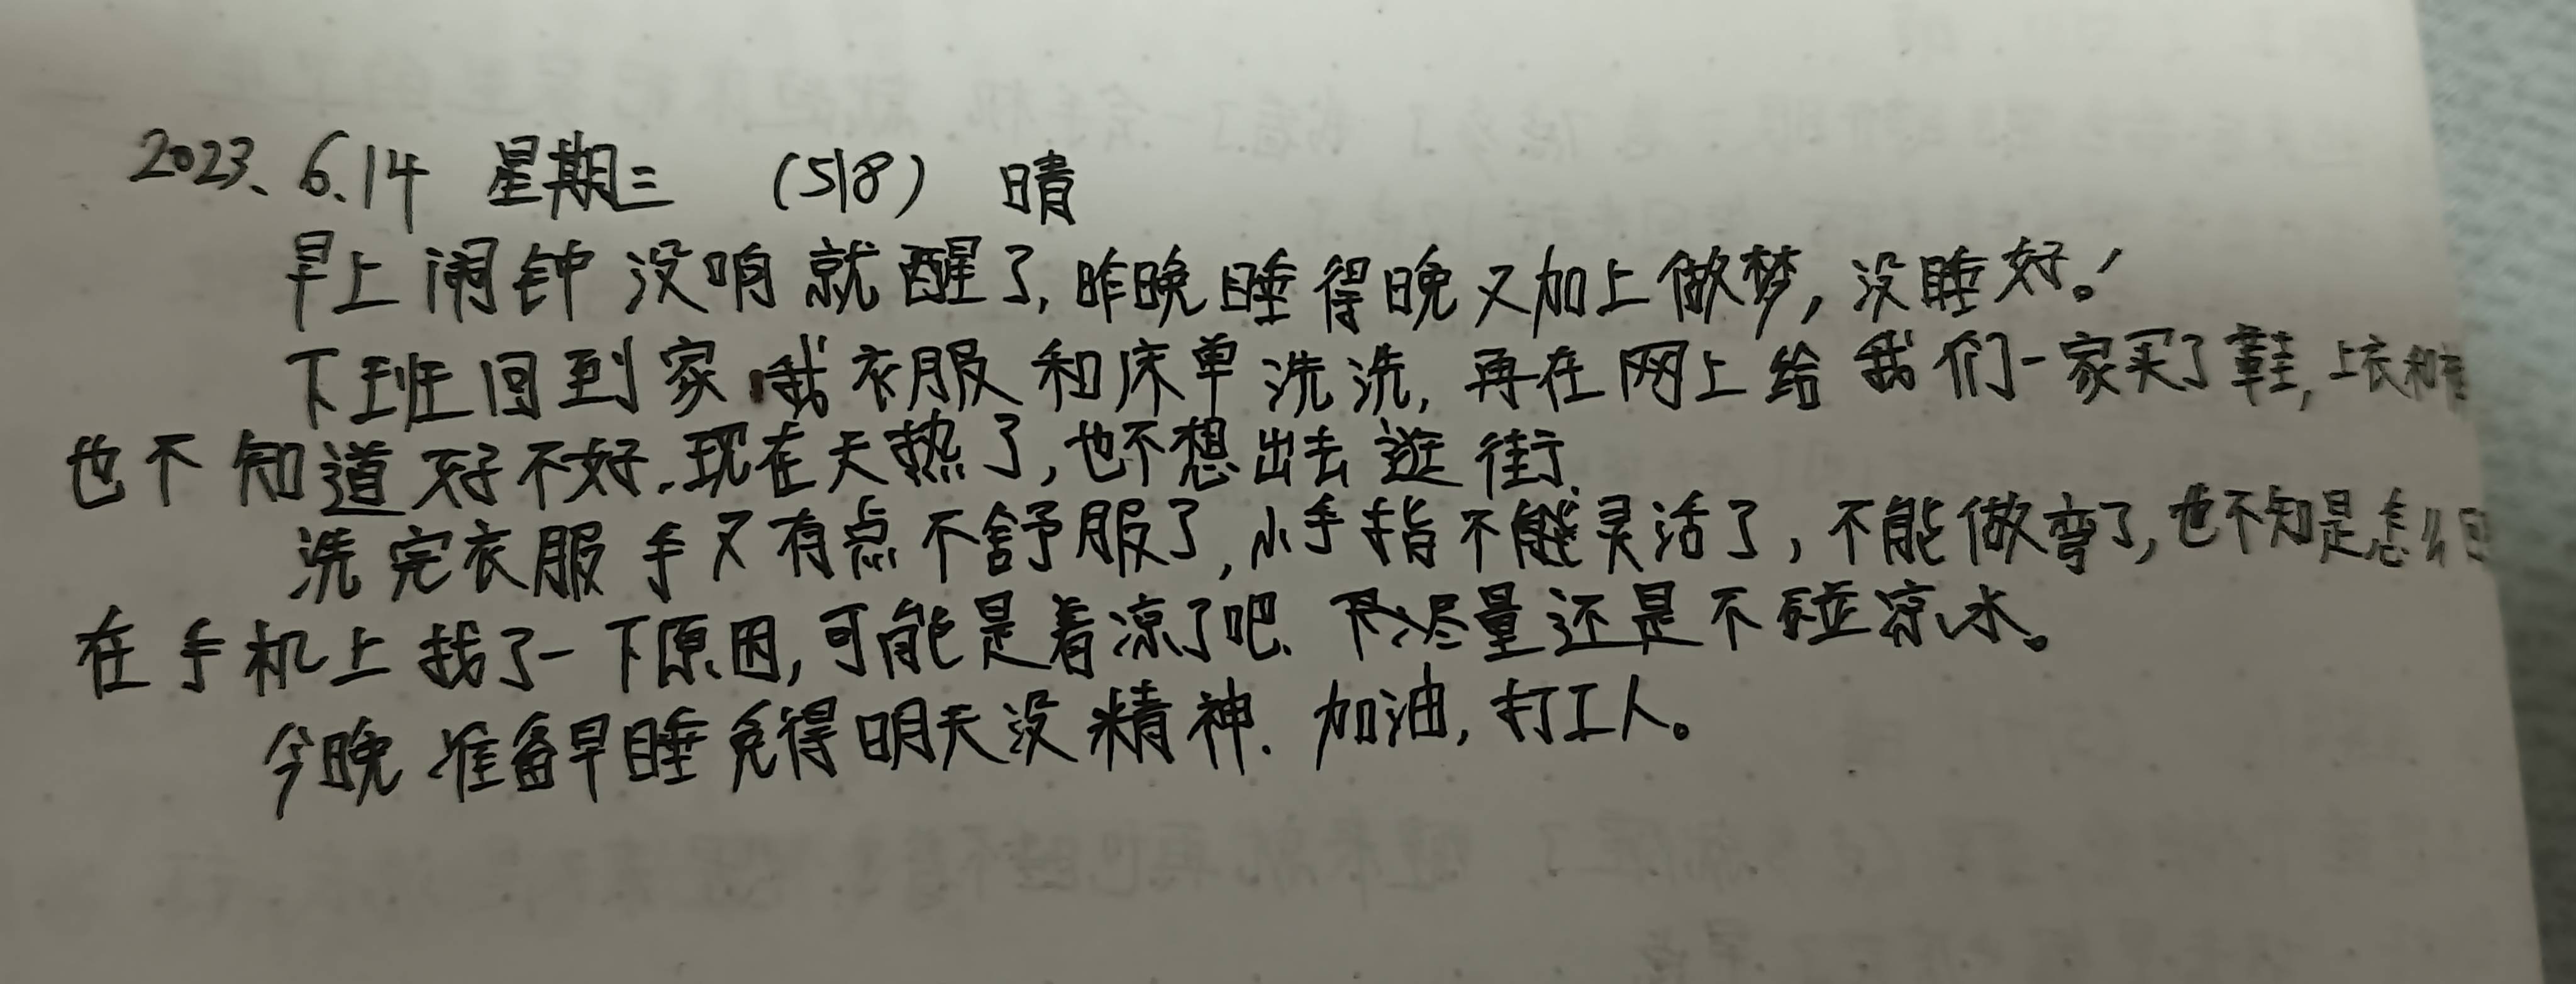 2023、6.14 星期三 (518) 晴
早上闹钟没响就醒了,昨晚睡得晚又加上做梦,没睡好。
下班回到家,我衣服和床单洗洗,再在网上给我们一家买了鞋,上衣和
也不知道好不好.现在天热了,也不想出去逛街.
洗完衣服手又有点不舒服了,小手指不能灵活了,不能做弯了,也不知是怎么回
在手机上找了一下原因,可能是着凉了吧、尽量还是不碰凉水。
今晚准备早睡免得明天没精神.加油,打工人。